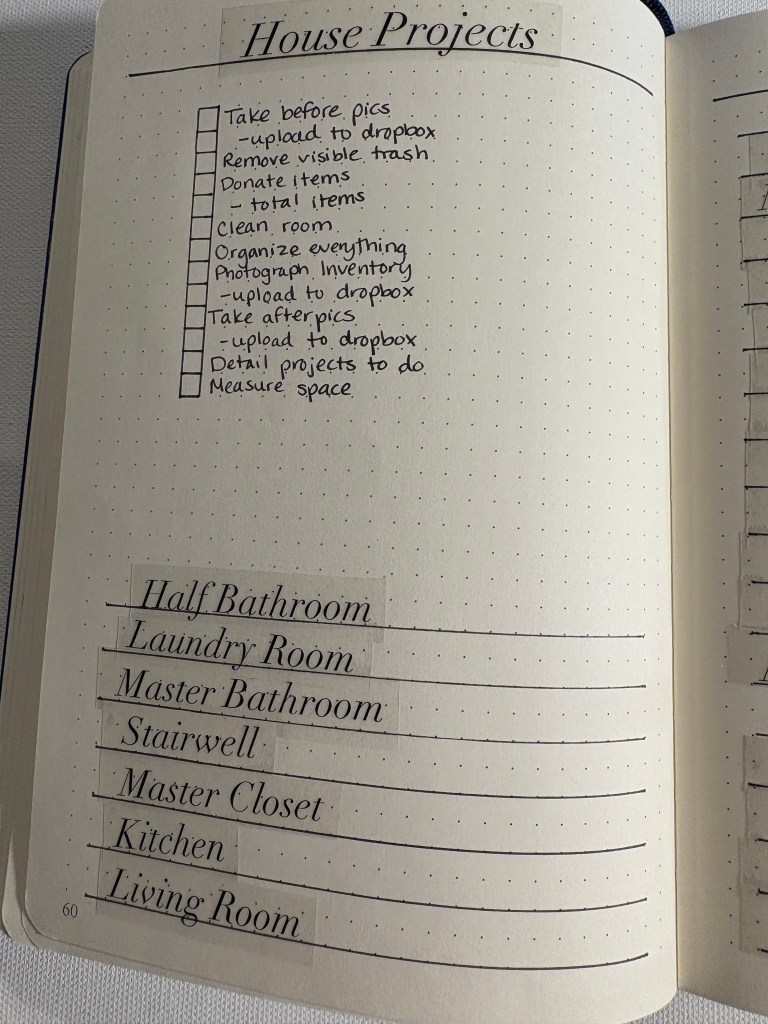 House Projects
Take before pics
-upload to dropbox
Remove visible trash
Donate items
- total items
Clean room
Organize everything
Photograph Inventory
-upload to dropbox
Take after pics
-upload to dropbox
Detail projects to do
Measure space
Half Bathroom
Laundry Room
Master Bathroom
Stairwell
Master Closet
Kitchen
Living Room
60